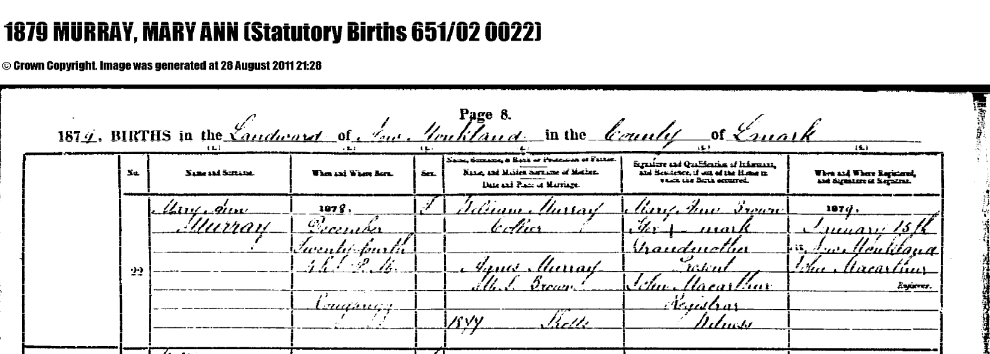 1879 MURRAY, MARY ANN (Statutory Births 651/02 0022)
© Crown Copyright. Image was generated at 28 August 2011 21:28
Page 8.
1879. BIRTHS in the Landward of New Monkland in the County of Lanark
No.
Name and Surname.
When and Where Born.
Sex.
Name, Surname, & Rank or Profession of Father.
Name, and Maiden Surname of Mother.
Date and Place of Marriage.
Signature and Qualification of Informant,
and Residence, if out of the House in
which the Birth occurred.
When and Where Registered,
and Signature of Registrar.
22
Mary Ann
Murray
1878.
December
Twenty fourth
4h P. M.
F
William Murray
Collier
Agnes Murray
M. S. Brown
1877 Shotts
Mary Ann Brown
Her + mark
Grandmother
Present
John Macarthur
Registrar
Witness
1879.
January 15th
New Monkland
John Macarthur
Registrar.